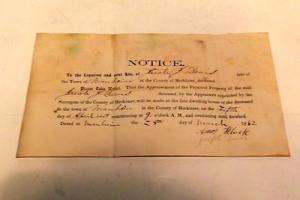 NOTICE.
To the Legatees and next Kin, of
late of
the Town of Manheim in the County of Herkimer,
Please Take Notice, That the Appraisement of the Personal Property of the said
deceased, by the Appraisers appointed by the
Surrogate of the County of Herkimer, will be made at the late dwelling house of the deceased
in the town of Manheim in the County of Herkimer, on the
day of April next at 9 o'clock A. M., and continuing until finished.
Dated at Manheim the day of March 1862